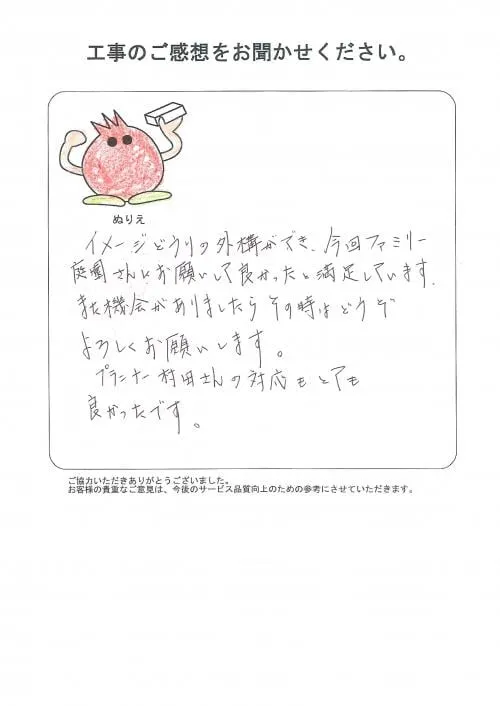 工事のご感想をお聞かせください。
ぬりえ
イメージどうりの外構ができ、今回ファミリー
庭園さんにお願いして良かったと満足しています。
また機会がありましたらその時はどうぞ
よろしくお願いします。
プランナー村田さんの対応もとても
良かったです。
ご協力いただきありがとうございました。
お客様の貴重なご意見は、今後のサービス品質向上のための参考にさせていただきます。